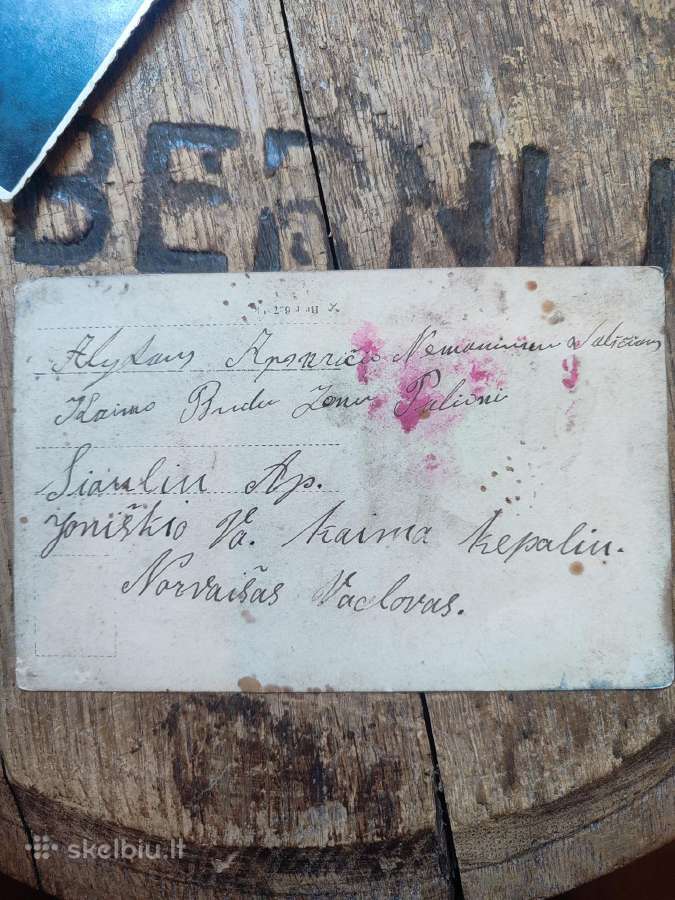 BERNLI
Alytaus Apskričio Nemaniunu Valsčiaus
Kaimo Budu Jonu
Siauliu Ap.
Joniškio Va. kaima kepaliu.
Norvaišas Vaclovas.
skelbiu.lt